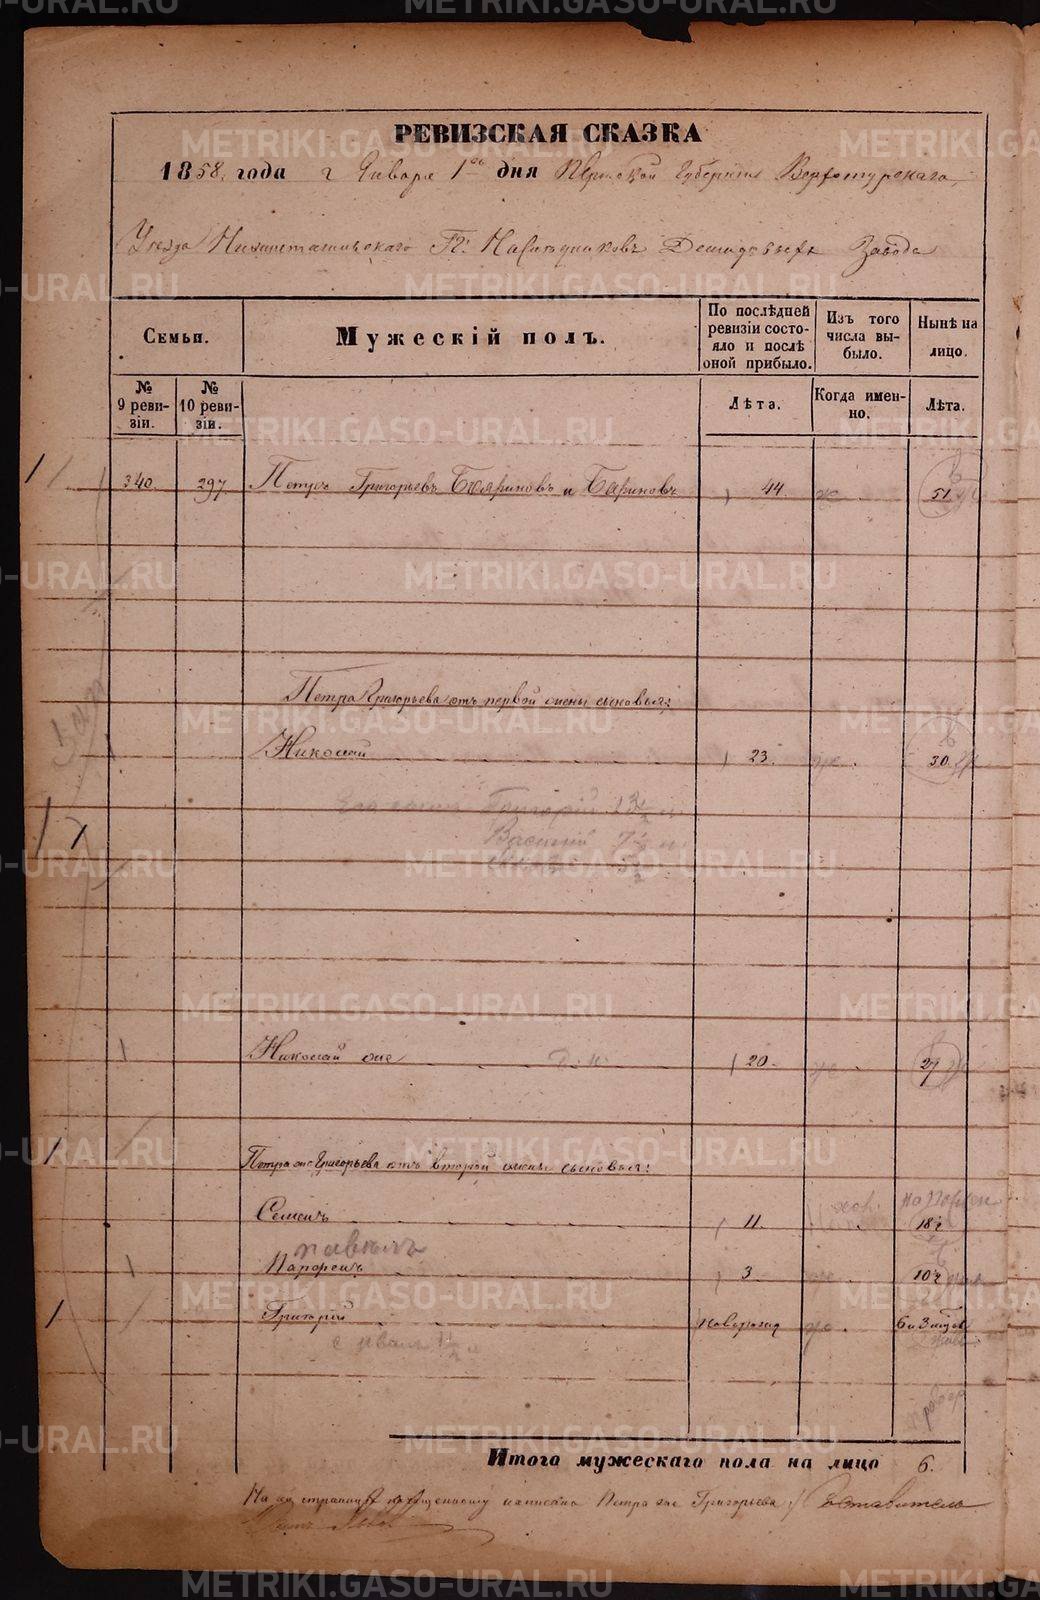 РЕВИЗСКАЯ СКАЗКА
1858 года г Января 1го дня Пермской Губернiи Верхотурскаго
Уезда Нижнетагильскаго Гг. Наследниковъ Демидовыхъ Завода
Семьи.
Мужескiй полъ.
По послѣдней ревизiи состояло и послѣ оной прибыло.
Изъ того числа выбыло.
Нынѣ на лицо.
№ 9 ревизiи.
№ 10 ревизiи.
Лѣта.
Когда именно.
Лѣта.
340. 297 Петръ Григорьевъ Бояриновъ и Бариновъ 44. 51.
Петра Григорьева отъ первой жены сыновья:
Николай 23. 30.
Григорiй 13 1/2
Василiй 7 1/2
5 1/2
Николай же 20. 27
Петра же Григорьева отъ второй жены сыновья:
Семенъ 11. 18 1/2
Парфенъ 3. 10 1/2
Григорiй новорожд 6 и 3 мѣсяц
Итого мужескаго пола на лицо 6.
На сей страницѣ написано Петра же Григорьева. Составитель
METRIKI.GASO-URAL.RU